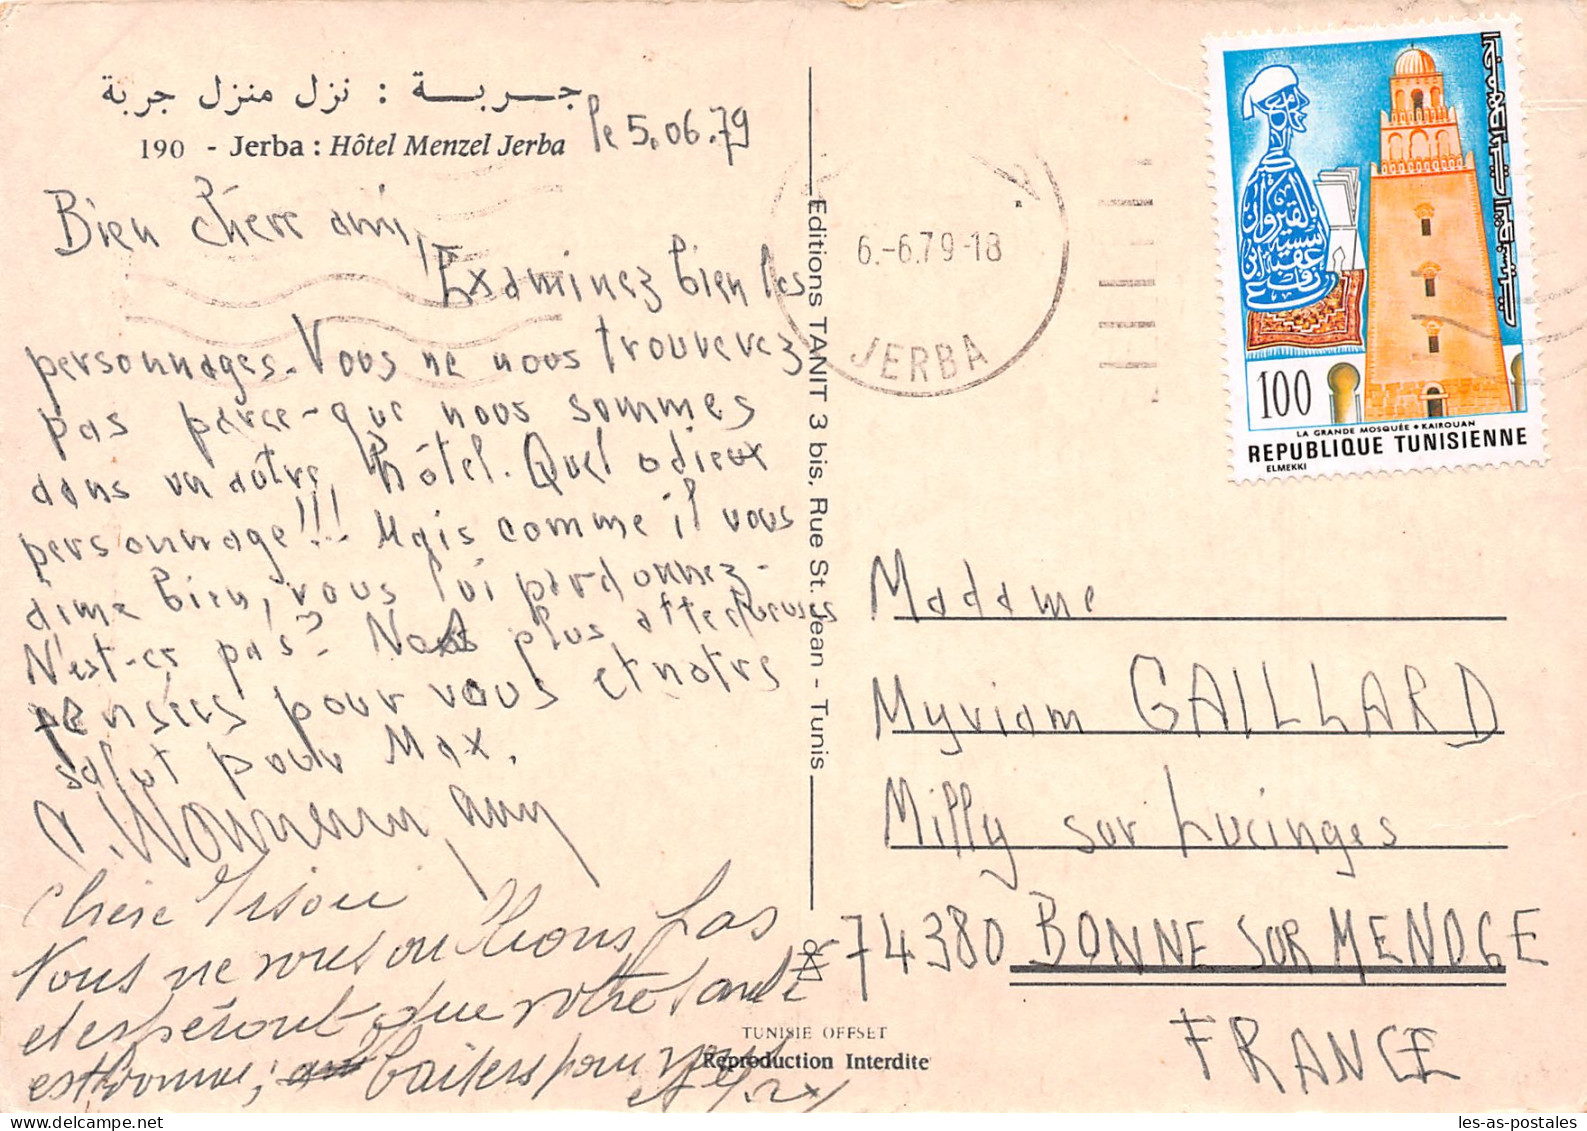 جــربــة : نزل منزل جربة
190 - Jerba : Hôtel Menzel Jerba
le 5.06.79
Bien chère ami,
Examinez bien les
personnages. Vous ne nous trouverez
pas parce-que nous sommes
dans un autre hôtel. Quel odieux
personnage!!! Mais comme il vous
aime bien, vous lui pardonnez.
N'est-ce pas? Nos plus affectueuses
pensées pour vous et notre
salut pour Max.
Chère
Nous ne vous oublions pas
et espérons que votre santé
est bonne; baisers pour vous
et Max
Editions TANIT 3 bis, Rue St. Jean - Tunis
TUNISIE OFFSET
Reproduction Interdite
6.-6.79-18
JERBA
الجمهورية التونسية
100
LA GRANDE MOSQUÉE • KAIROUAN
REPUBLIQUE TUNISIENNE
ELMEKKI
Madame
Myriam GAILLARD
Milly sur Lucinges
74380 BONNE SUR MENOGE
FRANCE
les-as-postales